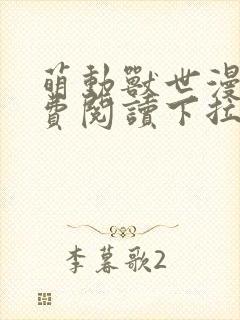 萌動獸世漫
費閱讀下拉
李暮歌2